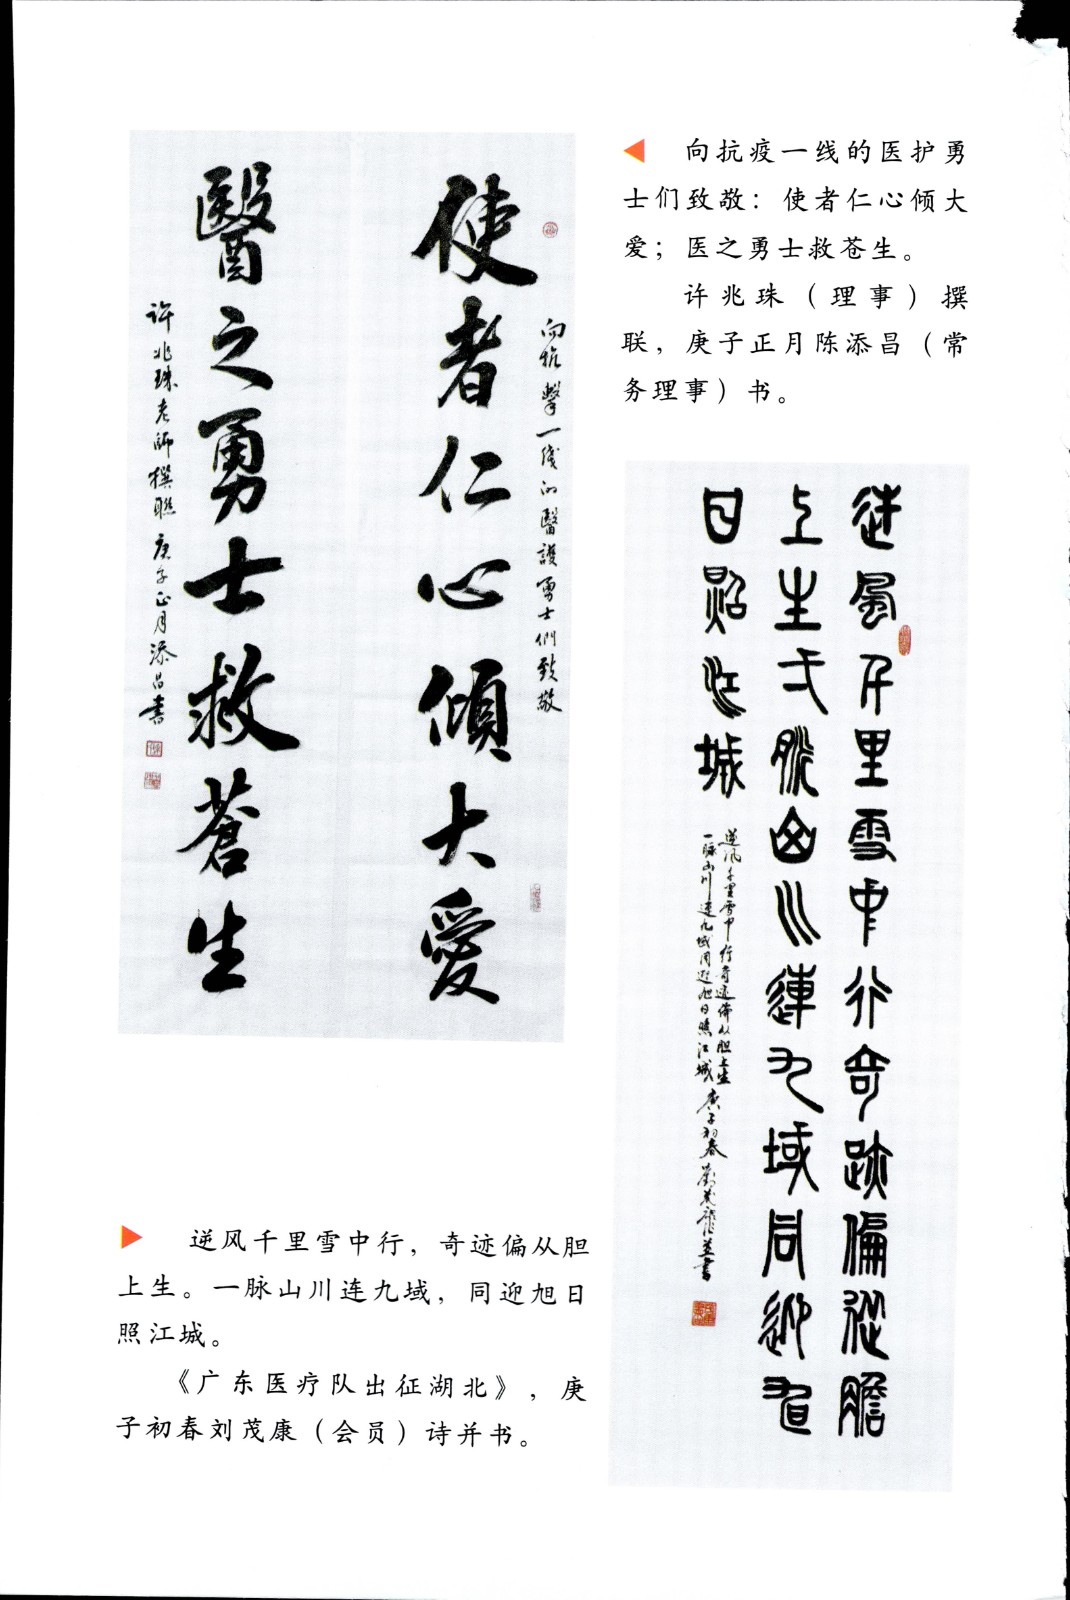 向抗疫一线的医护勇
士们致敬：使者仁心倾大
爱；医之勇士救苍生。
许兆珠（理事）撰
联，庚子正月陈添昌（常
务理事）书。
向抗擊一线的醫護勇士們致敬
使者仁心傾大愛
醫之勇士救蒼生
許兆珠老師撰聯 庚子正月添昌書
逆風千里雪中行奇跡偏從膽
上生一脈山川連九域同迎旭
日照江城
逆风千里雪中行奇迹偏从胆上生
一脉山川连九域同迎旭日照江城 庚子初春 劉茂康作並書
逆风千里雪中行，奇迹偏从胆
上生。一脉山川连九域，同迎旭日
照江城。
《广东医疗队出征湖北》，庚
子初春刘茂康（会员）诗并书。